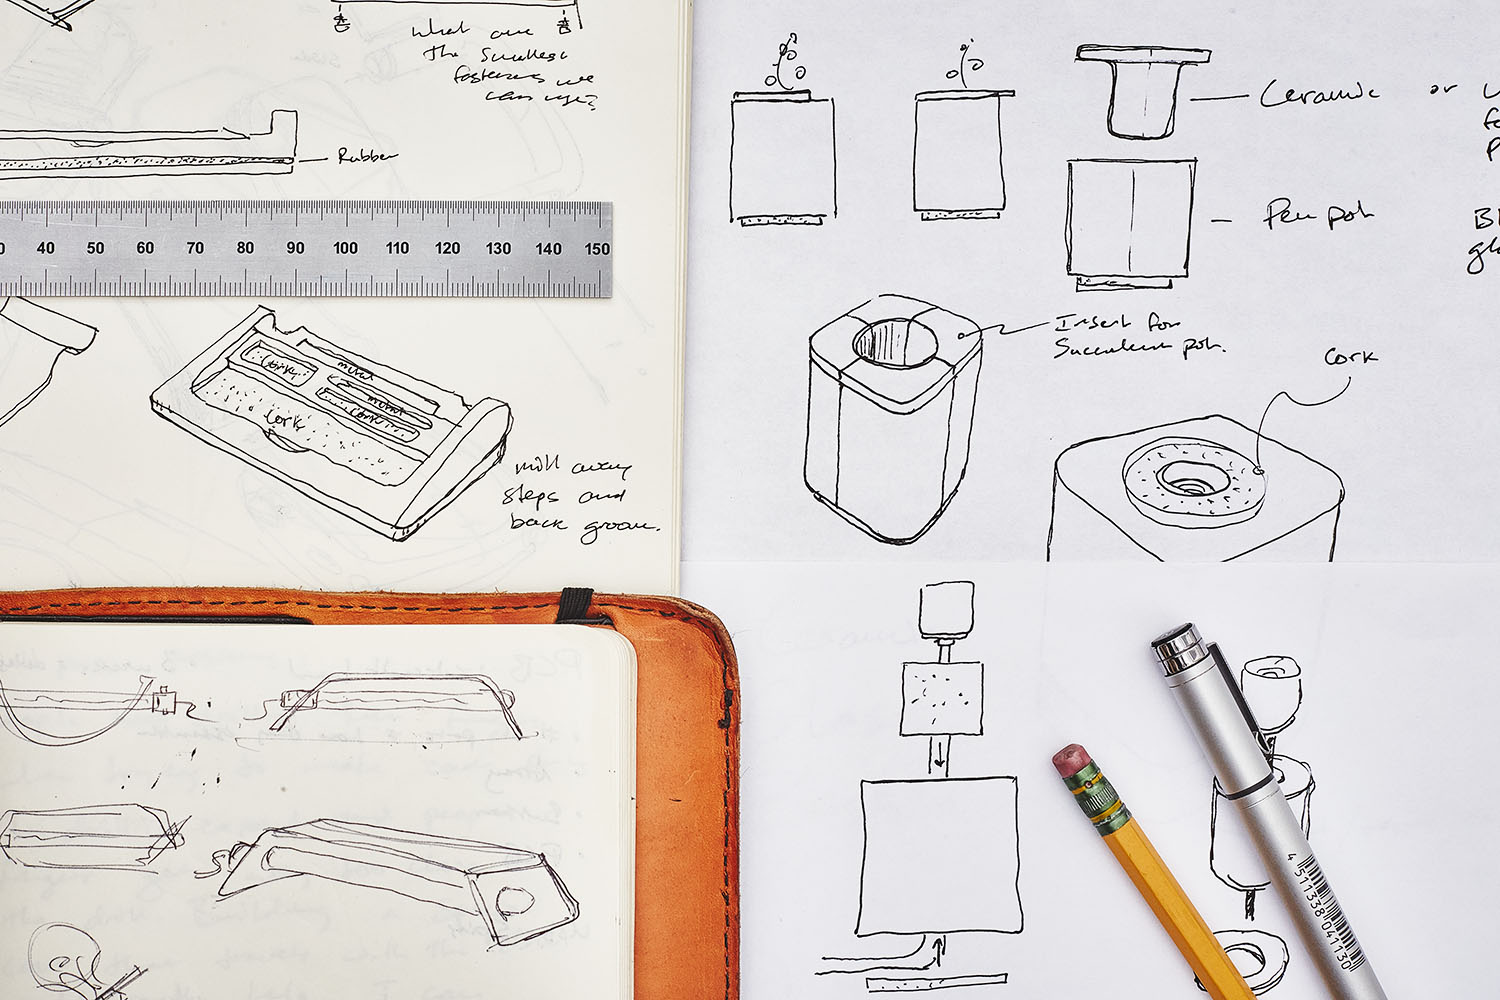 what are
the smallest
fasteners we
can use?
Rubber
40 50 60 70 80 90 100 110 120 130 140 150
cork
metal
metal
cork
cork
mill away
steps and
back groove.
Ceramic or
Pen pot
Insert for
Succulent pot.
Cork
4 511338 041130